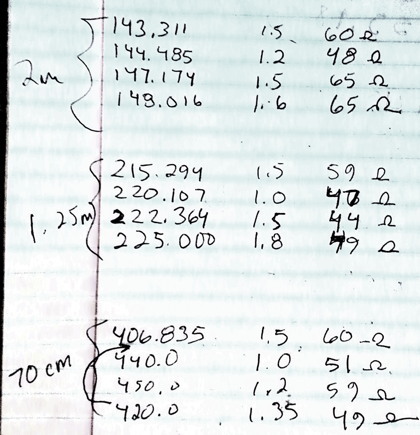 2m
143.311 1.5 60 Ω
144.485 1.2 48 Ω
147.174 1.5 65 Ω
148.016 1.6 65 Ω
1.25m
215.294 1.5 59 Ω
220.107 1.0 Ω
222.364 1.5 44 Ω
225.000 1.8 Ω
70 cm
406.835 1.5 60 Ω
440.0 1.0 51 Ω
450.0 1.2 59 Ω
420.0 1.35 49 Ω